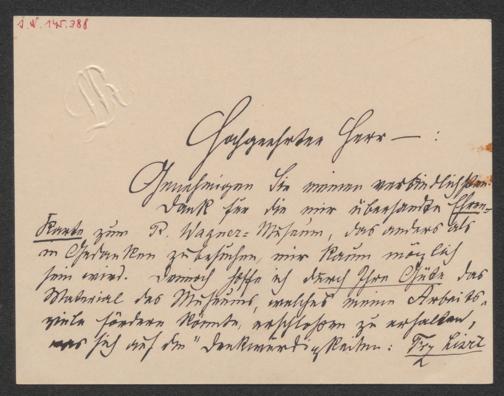 I. N. 145.388
Hochgeehrter Herr — :
Genehmigen Sie meinen verbindlichsten
Dank für die mir übersandte Ehren-
Karte zum R. Wagner-Museum, das anders als
in Gedanken zu besuchen, mir kaum möglich
sein wird. Dennoch hoffe ich durch Ihre Güte das
Material des Museums, welches meine Arbeits-
ziele fördern könnte, erschlossen zu erhalten,
was sich auf die "Denkwürdigkeiten: Frz Liszt